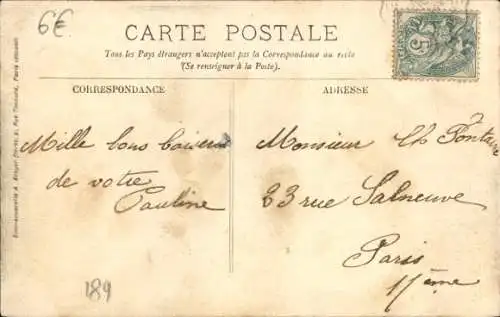 6€
CARTE POSTALE
Tous les Pays étrangers n'acceptent pas la Correspondance au recto
(Se renseigner à la Poste).
CORRESPONDANCE
ADRESSE
5
Mille bons baisers
de votre
Pauline
Monsieur Ch Fontaine
23 rue Salneuve
Paris
17ème
189